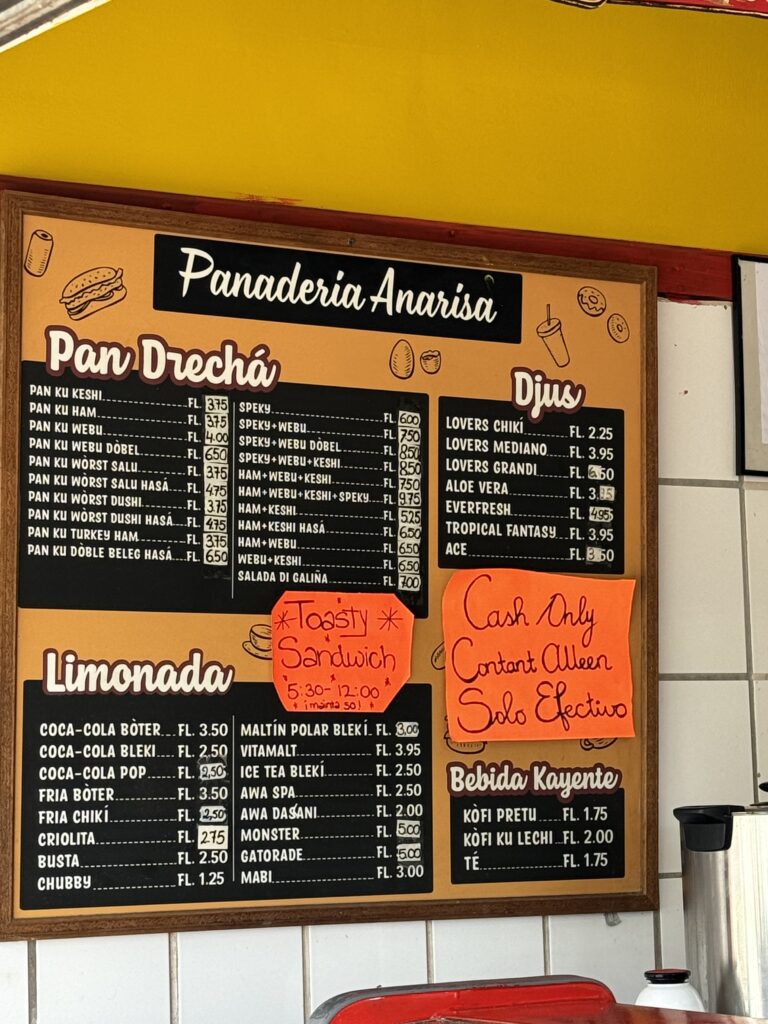 Panaderia Anarisa
Pan Drechá
PAN KU KESHI FL. 3.75
PAN KU HAM FL. 3.75
PAN KU WEBU FL. 4.00
PAN KU WEBU DÒBEL FL. 6.50
PAN KU WÒRST SALU FL. 3.75
PAN KU WÒRST SALU HASÁ FL. 4.75
PAN KU WÒRST DUSHI FL. 3.75
PAN KU WÒRST DUSHI HASÁ FL. 4.75
PAN KU TURKEY HAM FL. 3.75
PAN KU DÒBLE BELEG HASÁ FL. 6.50
SPEKY FL. 6.00
SPEKY+WEBU FL. 7.50
SPEKY+WEBU DÒBEL FL. 8.50
SPEKY+WEBU+KESHI FL. 8.50
HAM+WEBU+KESHI FL. 7.50
HAM+WEBU+KESHI+SPEKY FL. 9.75
HAM+KESHI FL. 5.25
HAM+KESHI HASÁ FL. 6.50
HAM+WEBU FL. 6.50
WEBU+KESHI FL. 6.50
SALADA DI GALIÑA FL. 7.00
Djus
LOVERS CHIKÍ FL. 2.25
LOVERS MEDIANO FL. 3.95
LOVERS GRANDI FL. 6.50
ALOE VERA FL. 3.95
EVERFRESH FL. 4.95
TROPICAL FANTASY FL. 3.95
ACE FL. 3.50
*Toasty*
Sandwich
5:30-12:00
¡mainta so!
Cash Only
Contant Alleen
Solo Efectivo
Limonada
COCA-COLA BÒTER FL. 3.50
COCA-COLA BLEKI FL. 2.50
COCA-COLA POP FL. 2,50
FRIA BÒTER FL. 3.50
FRIA CHIKÍ FL. 2,50
CRIOLITA FL. 2.75
BUSTA FL. 2.50
CHUBBY FL. 1.25
MALTÍN POLAR BLEKÍ FL. 3.00
VITAMALT FL. 3.95
ICE TEA BLEKÍ FL. 2.50
AWA SPA FL. 2.50
AWA DASANI FL. 2.00
MONSTER FL. 5.00
GATORADE FL. 5.00
MABI FL. 3.00
Bebida Kayente
KÒFI PRETU FL. 1.75
KÒFI KU LECHI FL. 2.00
TÉ FL. 1.75